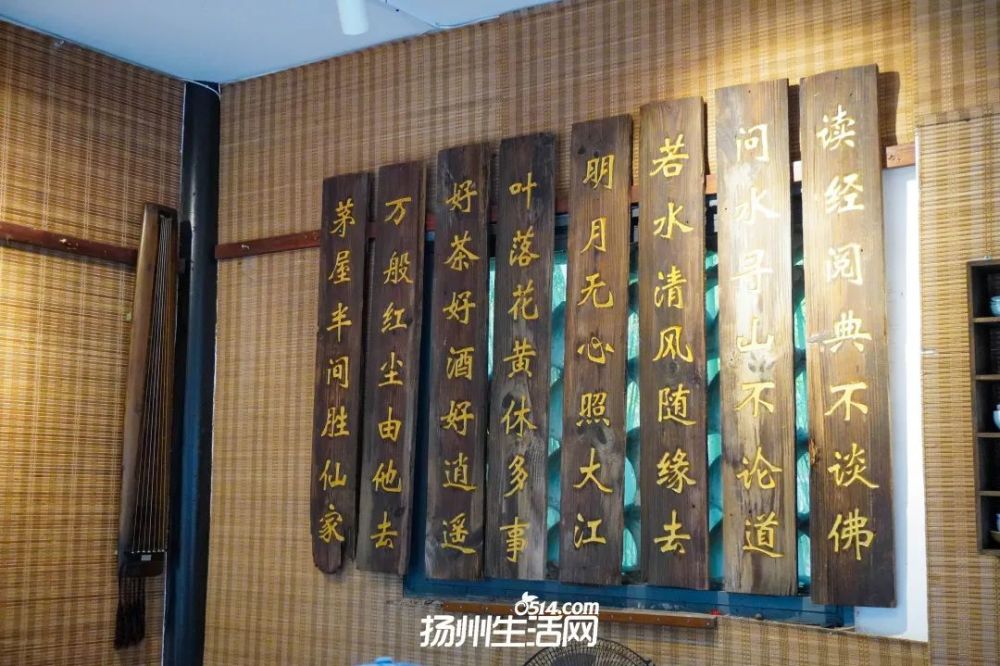 读经阅典不谈佛
问水寻山不论道
若水清风随缘去
明月无心照大江
叶落花黄休多事
好茶好酒好逍遥
万般红尘由他去
茅屋半间胜仙家
0514.com
扬州生活网